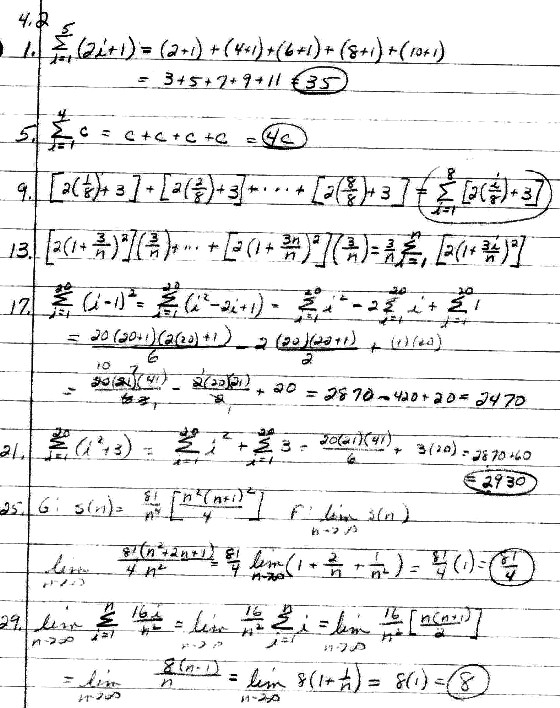 4.2
1. $\sum_{i=1}^{5} (2i+1) = (2+1)+(4+1)+(6+1)+(8+1)+(10+1)$
$= 3+5+7+9+11 = 35$
5. $\sum_{i=1}^{4} c = c+c+c+c = 4c$
9. $[2(\frac{1}{8})+3]+[2(\frac{2}{8})+3]+\cdots+[2(\frac{8}{8})+3] = \sum_{i=1}^{8} [2(\frac{i}{8})+3]$
13. $[2(1+\frac{3}{n})^2](\frac{3}{n})+\cdots+[2(1+\frac{3n}{n})^2](\frac{3}{n}) = \frac{3}{n}\sum_{i=1}^{n} [2(1+\frac{3i}{n})^2]$
17. $\sum_{i=1}^{20} (i-1)^2 = \sum_{i=1}^{20} (i^2-2i+1) = \sum_{i=1}^{20} i^2 - 2\sum_{i=1}^{20} i + \sum_{i=1}^{20} 1$
$= \frac{20(20+1)(2(20)+1)}{6} - 2\frac{(20)(20+1)}{2} + (1)(20)$
$= \frac{20(21)(41)}{6} - \frac{2(20)(21)}{2} + 20 = 2870-420+20 = 2470$
21. $\sum_{i=1}^{20} (i^2+3) = \sum_{i=1}^{20} i^2 + \sum_{i=1}^{20} 3 = \frac{20(21)(41)}{6} + 3(20) = 2870+60$
$= 2930$
25. G: $s(n) = \frac{81}{n^4} [\frac{n^2(n+1)^2}{4}]$ F: $\lim_{n\to\infty} s(n)$
$\lim_{n\to\infty} \frac{81(n^2+2n+1)}{4n^2} = \frac{81}{4} \lim_{n\to\infty} (1+\frac{2}{n}+\frac{1}{n^2}) = \frac{81}{4}(1) = \frac{81}{4}$
29. $\lim_{n\to\infty} \sum_{i=1}^{n} \frac{16i}{n^2} = \lim_{n\to\infty} \frac{16}{n^2} \sum_{i=1}^{n} i = \lim_{n\to\infty} \frac{16}{n^2} [\frac{n(n+1)}{2}]$
$= \lim_{n\to\infty} \frac{8(n-1)}{n} = \lim_{n\to\infty} 8(1+\frac{1}{n}) = 8(1) = 8$